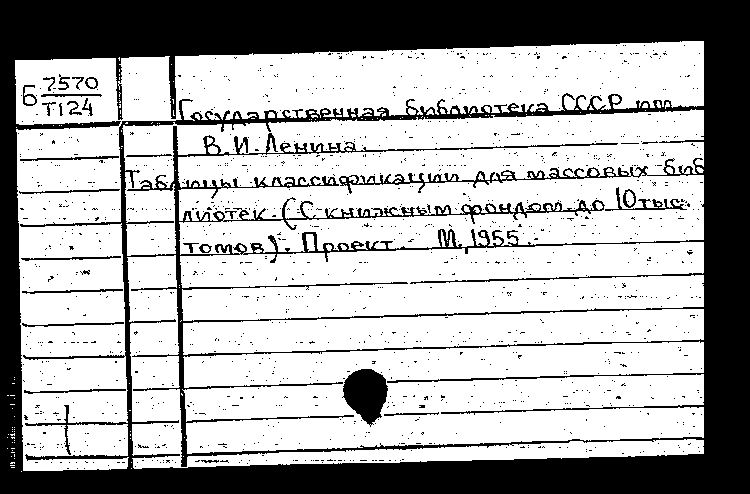 Б 7570
Т124
Государственная библиотека СССР им.
В.И. Ленина.
Таблицы классификации для массовых биб
лиотек. (С книжным фондом до 10 тыс.
томов). Проект. М., 1955.